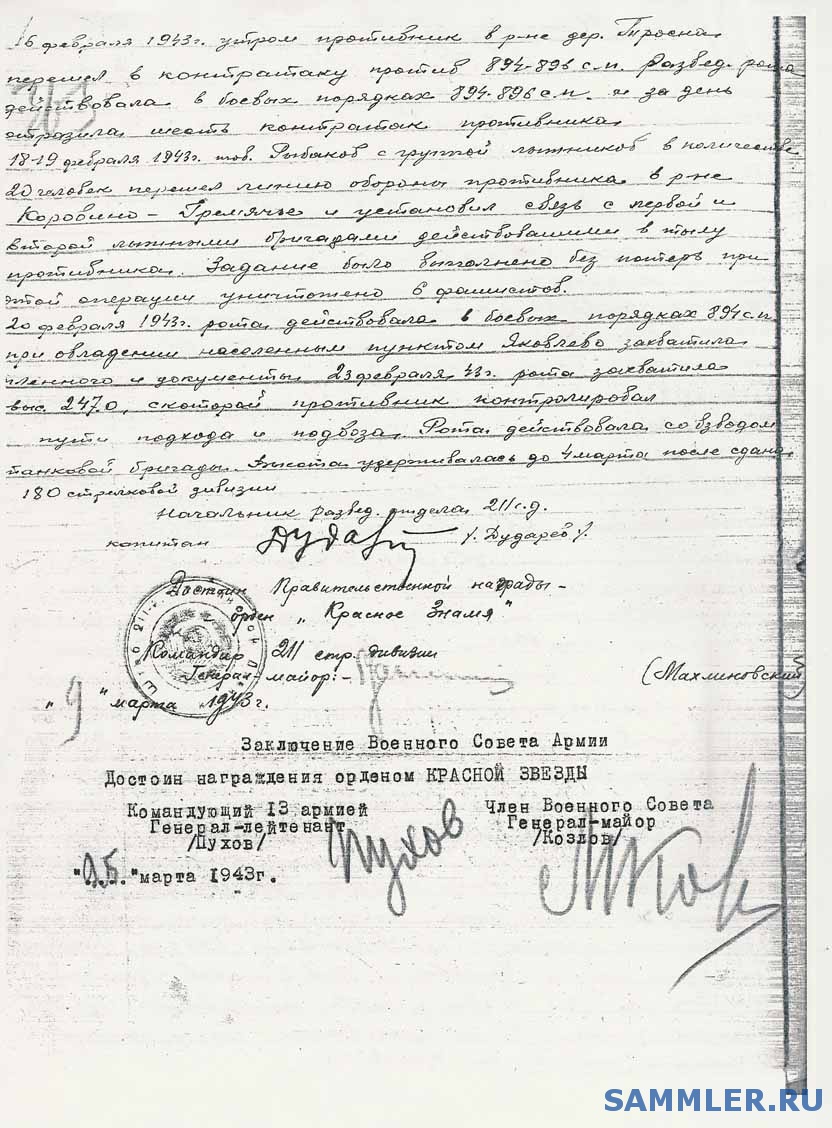 16 февраля 1943г. утром противник в р-не дер. Тросна
перешел в контратаку против 894-896 с.п. Развед. рота
действовала в боевых порядках 894-896 с.п. и за день
отразила шесть контратак противника.
18-19 февраля 1943г. тов. Рыбаков с группой лыжников в количестве
20 человек перешел линию обороны противника в р-не
Коровино - Гремячье и установил связь с первой и
второй лыжными бригадами действовавшими в тылу
противника. Задание было выполнено без потерь при
этой операции уничтожено 6 фашистов.
20 февраля 1943г. рота действовала в боевых порядках 894 с.п.
при овладении населенным пунктом Яковлево захватила
пленного и документы. 23 февраля 43г. рота захватила
выс. 247.0, с которой противник контролировал
пути подхода и подвоза. Рота действовала со взводом
танковой бригады. Высота удерживалась до 4 марта после сдана
180 стрелковой дивизии
Начальник развед. отдела 211 с.д.
капитан Дударев /. Дударев /.
Достоин Правительственной награды -
орден „Красное Знамя"
Командир 211 стр. дивизии
Генерал-майор:- (Махлиновский)
"9" марта 1943г.
Заключение Военного Совета Армии
Достоин награждения орденом КРАСНОЙ ЗВЕЗДЫ
Командующий 13 армией Член Военного Совета
Генерал-лейтенант Генерал-майор
/Пухов/ Пухов /Козлов/
"25." марта 1943г.
SAMMLER.RU